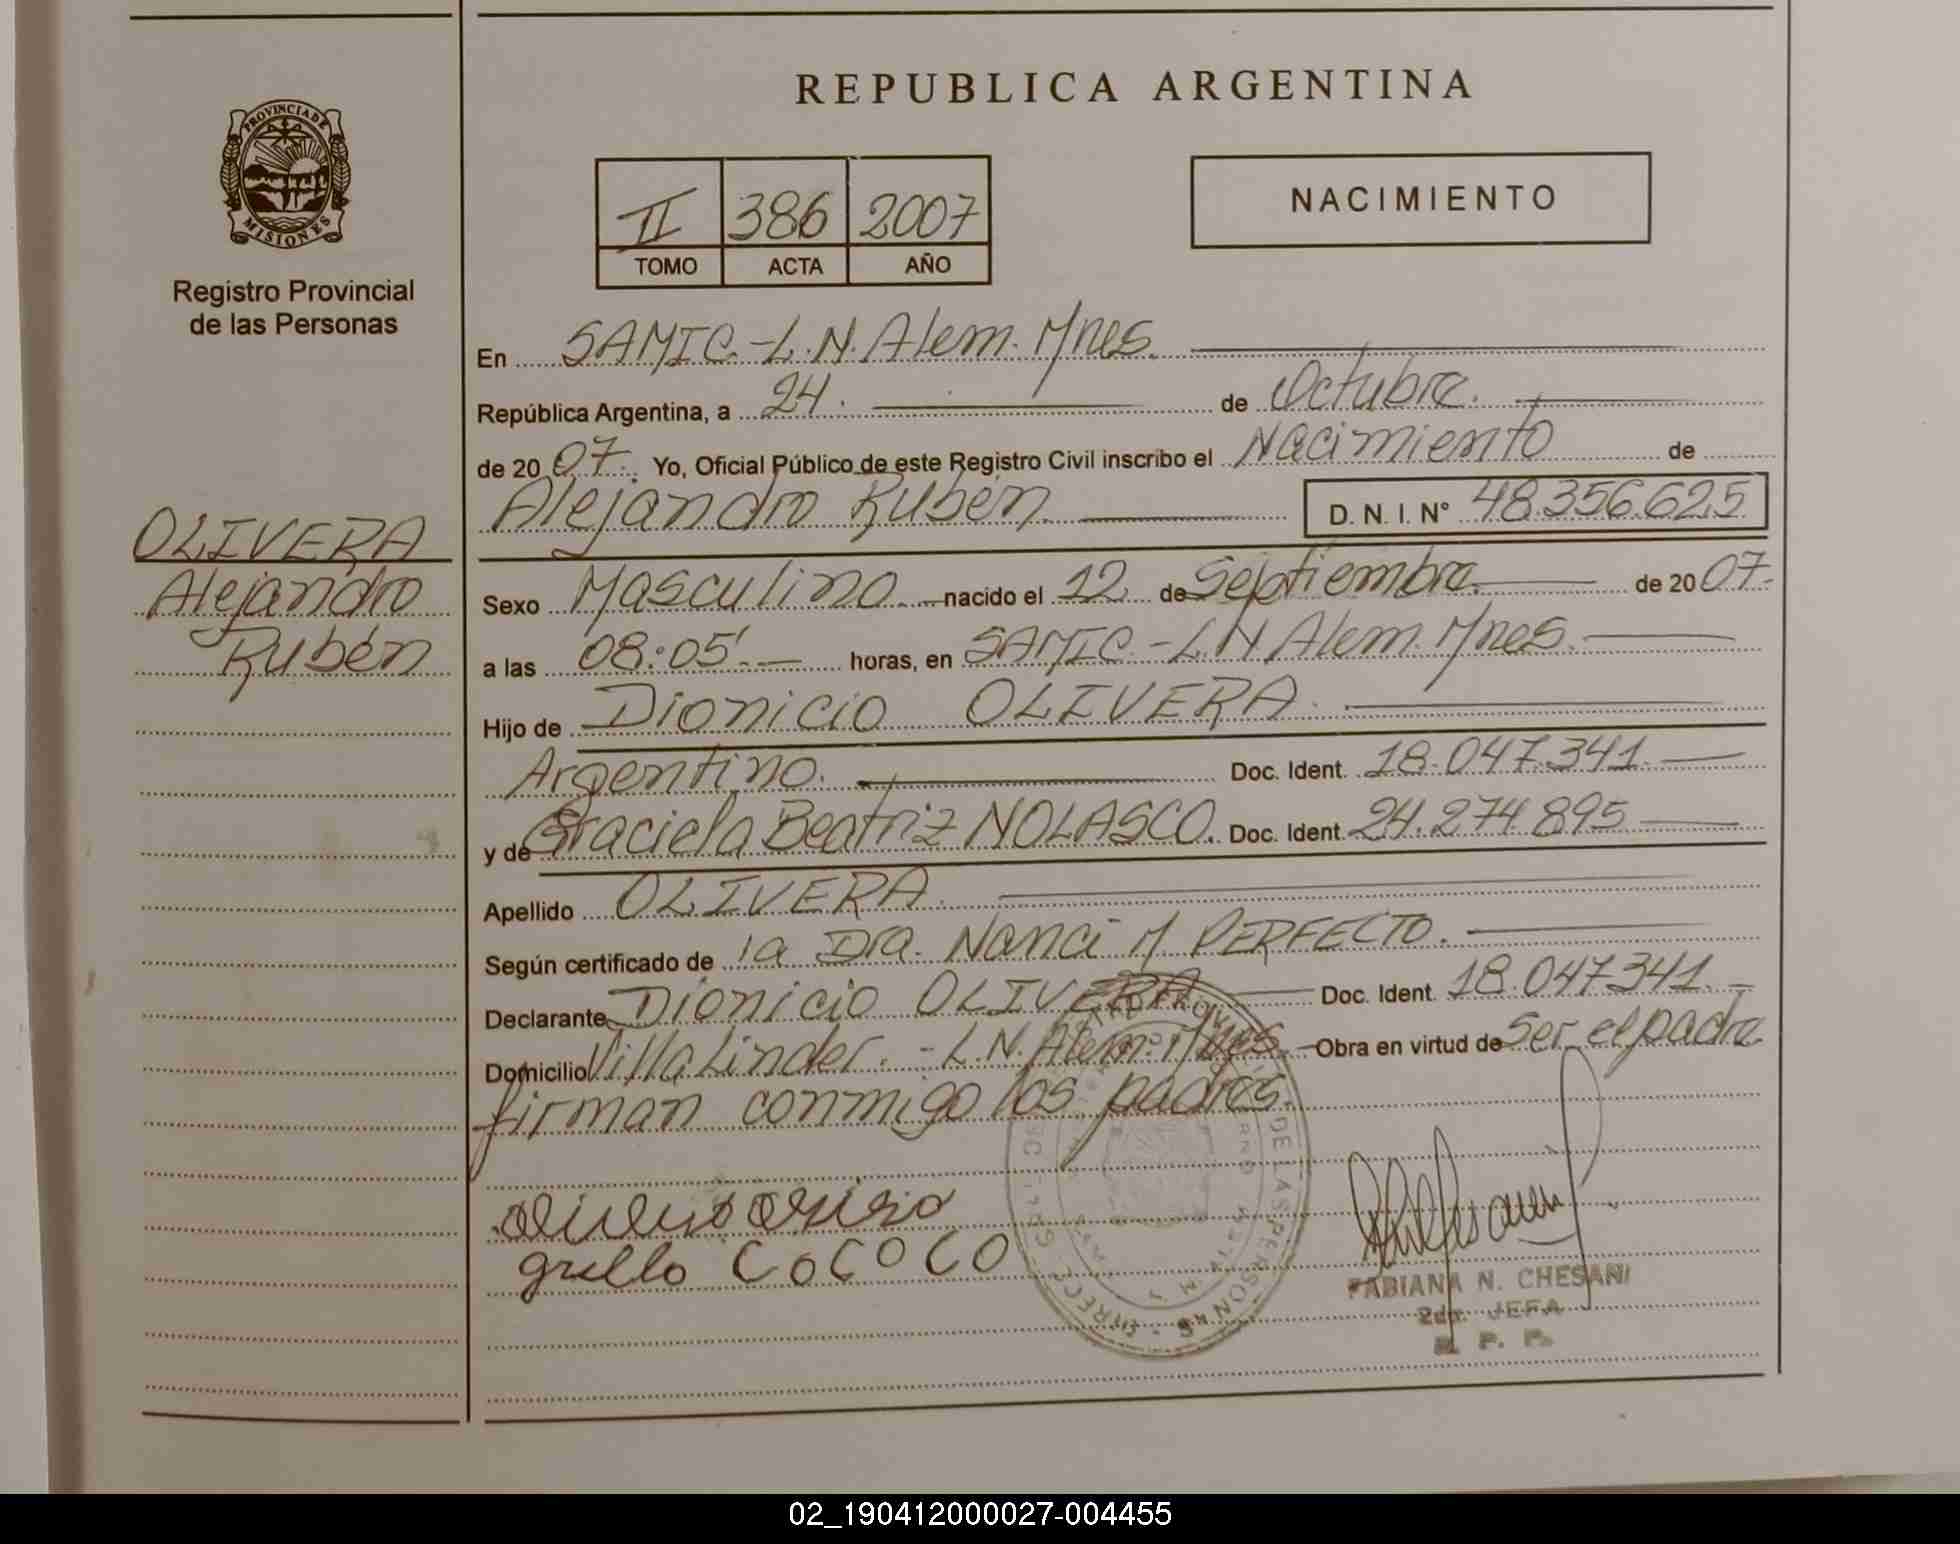 REPUBLICA ARGENTINA
PROVINCIA DE
MISIONES
Registro Provincial
de las Personas
II 386 2007
TOMO ACTA AÑO
NACIMIENTO
En SAMIC.-L.N.Alem.Mnes.
República Argentina, a 24. de Octubre.
de 20 07. Yo, Oficial Público de este Registro Civil inscribo el Nacimiento de
Alejandro Rubén D. N. I. Nº 48.356.625
OLIVERA
Alejandro
Rubén
Sexo Masculino. nacido el 12 de Septiembre. de 20 07.
a las 08:05'. horas, en SAMIC.-L.N Alem.Mnes.
Hijo de Dionicio OLIVERA.
Argentino. Doc. Ident. 18.047.341.
y de Graciela Beatriz NOLASCO. Doc. Ident. 24.274.895
Apellido OLIVERA.
Según certificado de la Dra. Nanci M. PERFECTO.
Declarante Dionicio OLIVERA Doc. Ident. 18.047.341.
Domicilio Villa Linder. - L.N. Alem. Mnes. Obra en virtud de Ser el padre.
firman conmigo los padres.
DE LAS PERSONAS
FABIANA N. CHESANI
2da. JEFA
R. P. P.
02_190412000027-004455